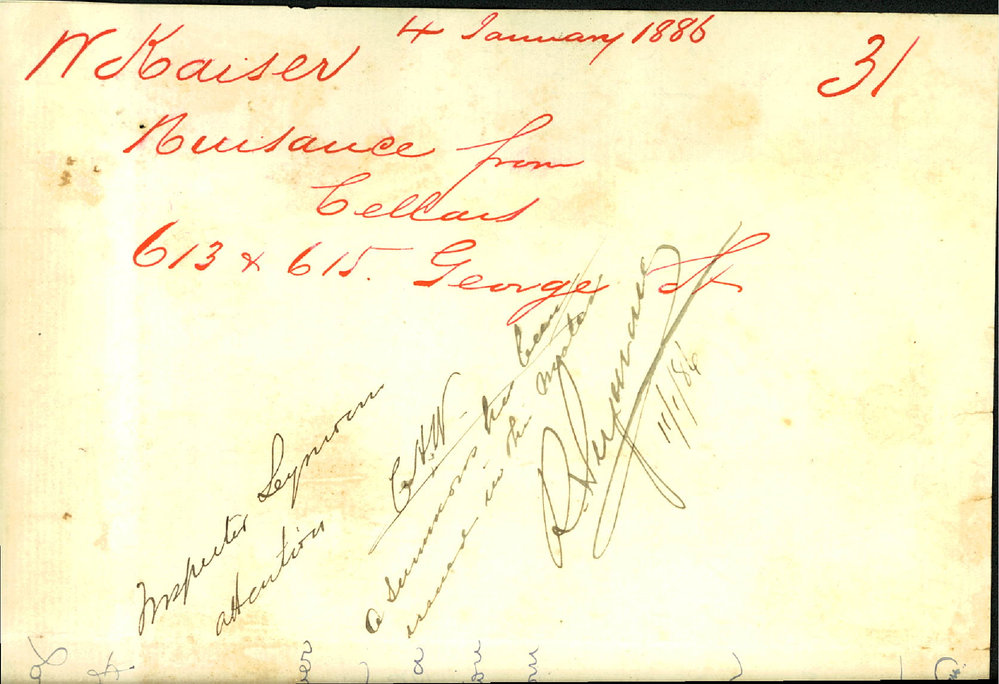 4 January 1886
W Kaiser
31
Nuisance from
Cellars
613 & 615. George St
Inspector Seymour
attention
C.H.W
A Summons has been
issued in this matter
R. Seymour
11/1/86